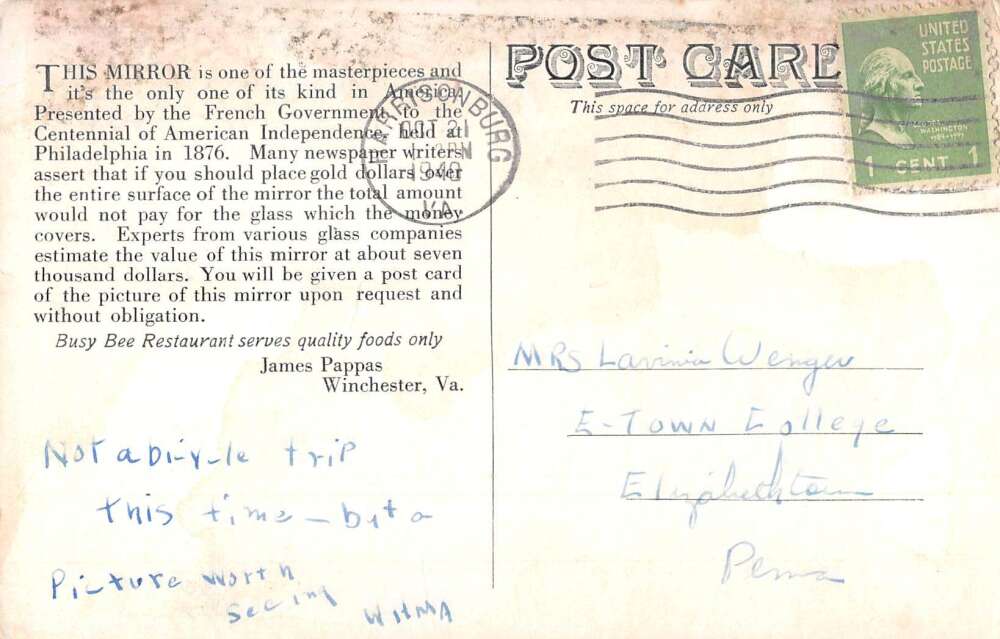 THIS MIRROR is one of the masterpieces and
it's the only one of its kind in America.
Presented by the French Government to the
Centennial of American Independence, held at
Philadelphia in 1876. Many newspaper writers
assert that if you should place gold dollars over
the entire surface of the mirror the total amount
would not pay for the glass which the money
covers. Experts from various glass companies
estimate the value of this mirror at about seven
thousand dollars. You will be given a post card
of the picture of this mirror upon request and
without obligation.
Busy Bee Restaurant serves quality foods only
James Pappas
Winchester, Va.
Not a bicycle trip
this time - but a
Picture worth
seeing
POST CARD
This space for address only
HARRISONBURG
OCT 21
1940
VA.
UNITED
STATES
POSTAGE
WASHINGTON
1 CENT 1
MRS Lavinia Wenger
E-TOWN College
Elizabethtown
Penna